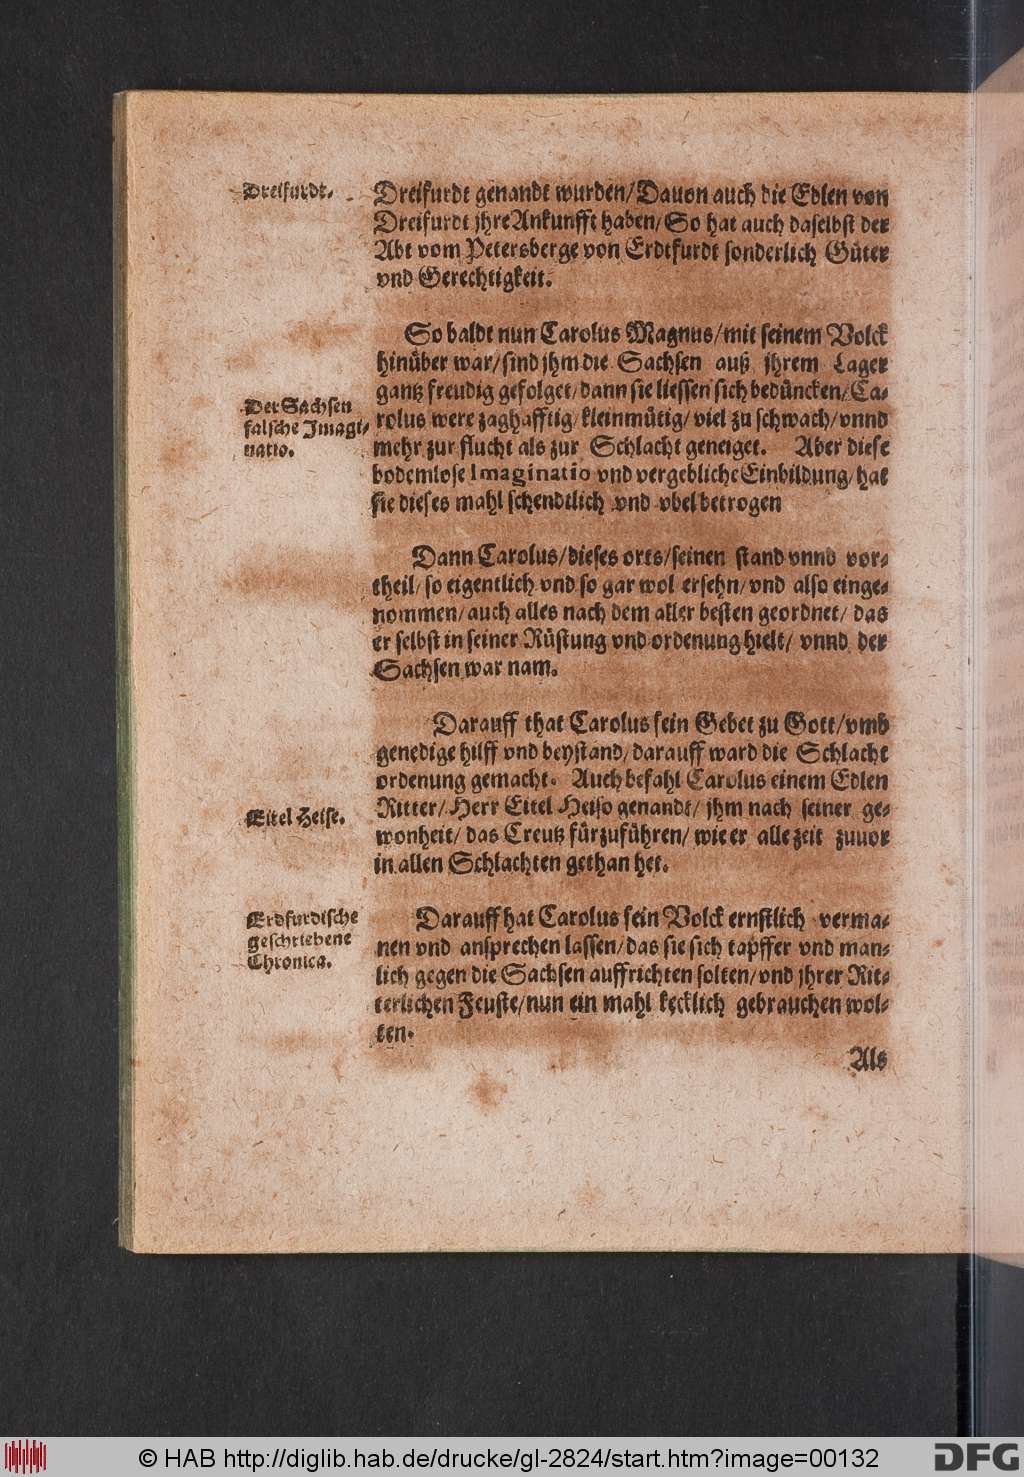 Dreifurdt.
Dreifurdt genandt wurden/ Dauon auch die Edlen von
Dreifurdt jhre Ankunfft haben/ So hat auch daselbst der
Abt vom Petersberge von Erdtfurdt sonderlich Güter
vnd Gerechtigkeit.
So baldt nun Carolus Magnus/ mit seinem Volck
hinüber war/ sind jhm die Sachsen auß jhrem Lager
gantz freudig gefolget/ dann sie liessen sich bedüncken/ Ca-
Der Sachsen
falsche Jmagi-
natio.
rolus were zaghafftig/ kleinmütig/ viel zu schwach/ vnnd
mehr zur flucht als zur Schlacht geneiget. Aber diese
bodemlose Imaginatio vnd vergebliche Einbildung/ hat
sie dieses mahl schendtlich vnd vbel betrogen
Dann Carolus/ dieses orts/ seinen stand vnnd vor-
theil/ so eigentlich vnd so gar wol ersehn/ vnd also einge-
nommen/ auch alles nach dem aller besten geordnet/ das
er selbst in seiner Rüstung vnd ordenung hielt/ vnnd der
Sachsen war nam.
Darauff that Carolus sein Gebet zu Gott/ vmb
genedige hilff vnd beystand/ darauff ward die Schlacht
ordenung gemacht. Auch befahl Carolus einem Edlen
Eitel Heise.
Ritter/ Herr Eitel Heiso genandt/ jhm nach seiner ge-
wonheit/ das Creutz fürzuführen/ wie er alle zeit zuuor
in allen Schlachten gethan het.
Erdfurdische
geschriebene
Chronica.
Darauff hat Carolus sein Volck ernstlich verma-
nen vnd ansprechen lassen/ das sie sich tapffer vnd man-
lich gegen die Sachsen auffrichten solten/ vnd jhrer Rit-
terlichen Feuste/ nun ein mahl kecklich gebrauchen wol-
ten.
Als
© HAB http://diglib.hab.de/drucke/gl-2824/start.htm?image=00132
DFG